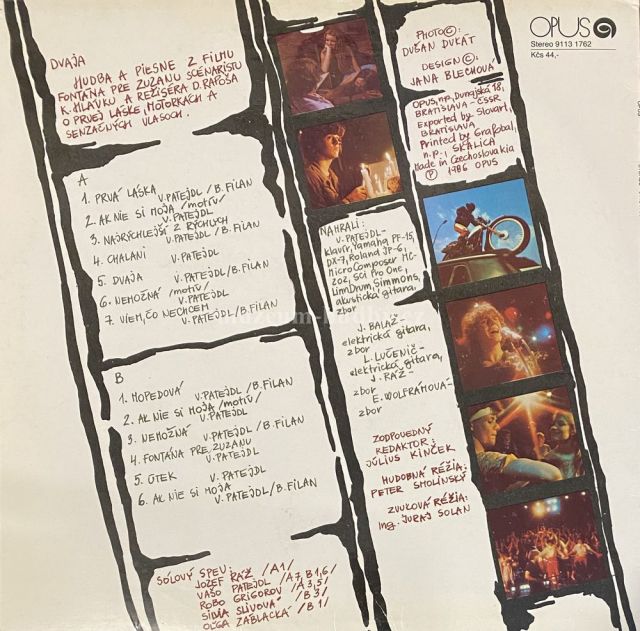 DVAJA
HUDBA A PIESNE Z FILMU
FONTÁNA PRE ZUZANU SCENÁRISTU
K. HLAVKU A REŽISÉRA D. RAPOŠA
O PRVEJ LÁSKE, MOTORKÁCH A
SENZAČNÝCH VLASOCH.
A
1. PRVÁ LÁSKA V. PATEJDL/B. FILAN
2. AK NIE SI MOJA /motív/
V. PATEJDL
3. NAJRÝCHLEJŠÍ Z RÝCHLYCH
V. PATEJDL/B. FILAN
4. CHALANI V. PATEJDL
5. DVAJA V. PATEJDL/B. FILAN
6. NEMOŽNÁ /motív/
V. PATEJDL
7. VIEM, ČO NECHCEM
V. PATEJDL/B. FILAN
B
1. MOPEDOVÁ V. PATEJDL/B. FILAN
2. AK NIE SI MOJA /motív/
V. PATEJDL
3. NEMOŽNÁ V. PATEJDL/B. FILAN
4. FONTÁNA PRE ZUZANU
V. PATEJDL
5. ÚTEK V. PATEJDL
6. AK NIE SI MOJA
V. PATEJDL/B. FILAN
SÓLOVÝ SPEV:
JOZEF RÁŽ /A1/
VAŠO PATEJDL /A7, B1,6/
ROBO GRIGOROV /A3,5/
SILVIA SLIVOVÁ /B3/
OĽGA ZÁBLACKÁ /B1/
NAHRALI:
V. PATEJDL-
klavír, Yamaha PF-15,
DX-7, Roland JP-6,
MicroComposer MC-
202, Sci Pro One,
LinnDrum, Simmons,
akustická gitara,
zbor
J. BALÁŽ-
elektrická gitara,
zbor
L. LUČENIČ-
elektrická gitara,
J. RÁŽ-
zbor
E. WOLFRAMOVÁ-
zbor
ZODPOVEDNÝ
REDAKTOR:
JÚLIUS KINČEK
HUDOBNÁ RÉŽIA:
PETER SMOLINSKÝ
ZVUKOVÁ RÉŽIA:
Ing. JURAJ SOLAN
PHOTO ©:
DUŠAN DUKÁT
DESIGN ©:
JANA BLECHOVÁ
OPUS, n.p., Dunajská 18,
BRATISLAVA - ČSSR
Exported by Slovart,
BRATISLAVA
Printed by Grafobal,
n.p., SKALICA
Made in Czechoslovakia
℗ 1986 OPUS
OPUS
Stereo 9113 1762
Kčs 44,-